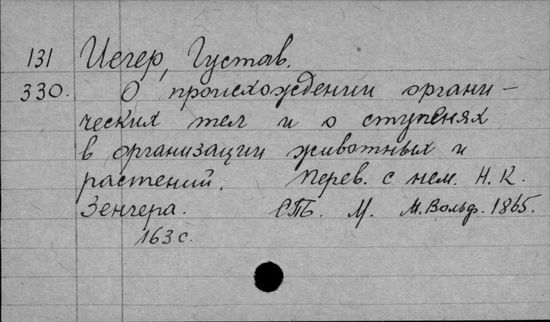 131 Иегер, Густав.
330. О происхождении органи-
ческих тел и о ступенях
в организации животных и
растений. Перев. с нем. Н. К.
Зенгера. СПБ. М. М. Вольф. 1865.
163 с.